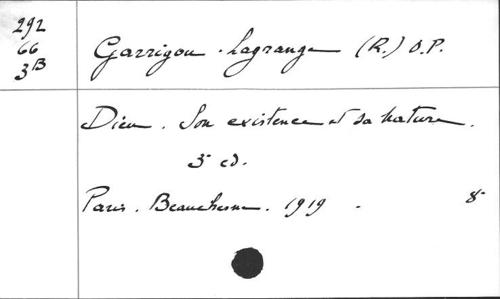 292
66
3B
Garrigou-Lagrange (R.) O.P.
Dieu. Son existence et sa nature.
3e ed.
Paris. Beauchesne. 1919. 8°